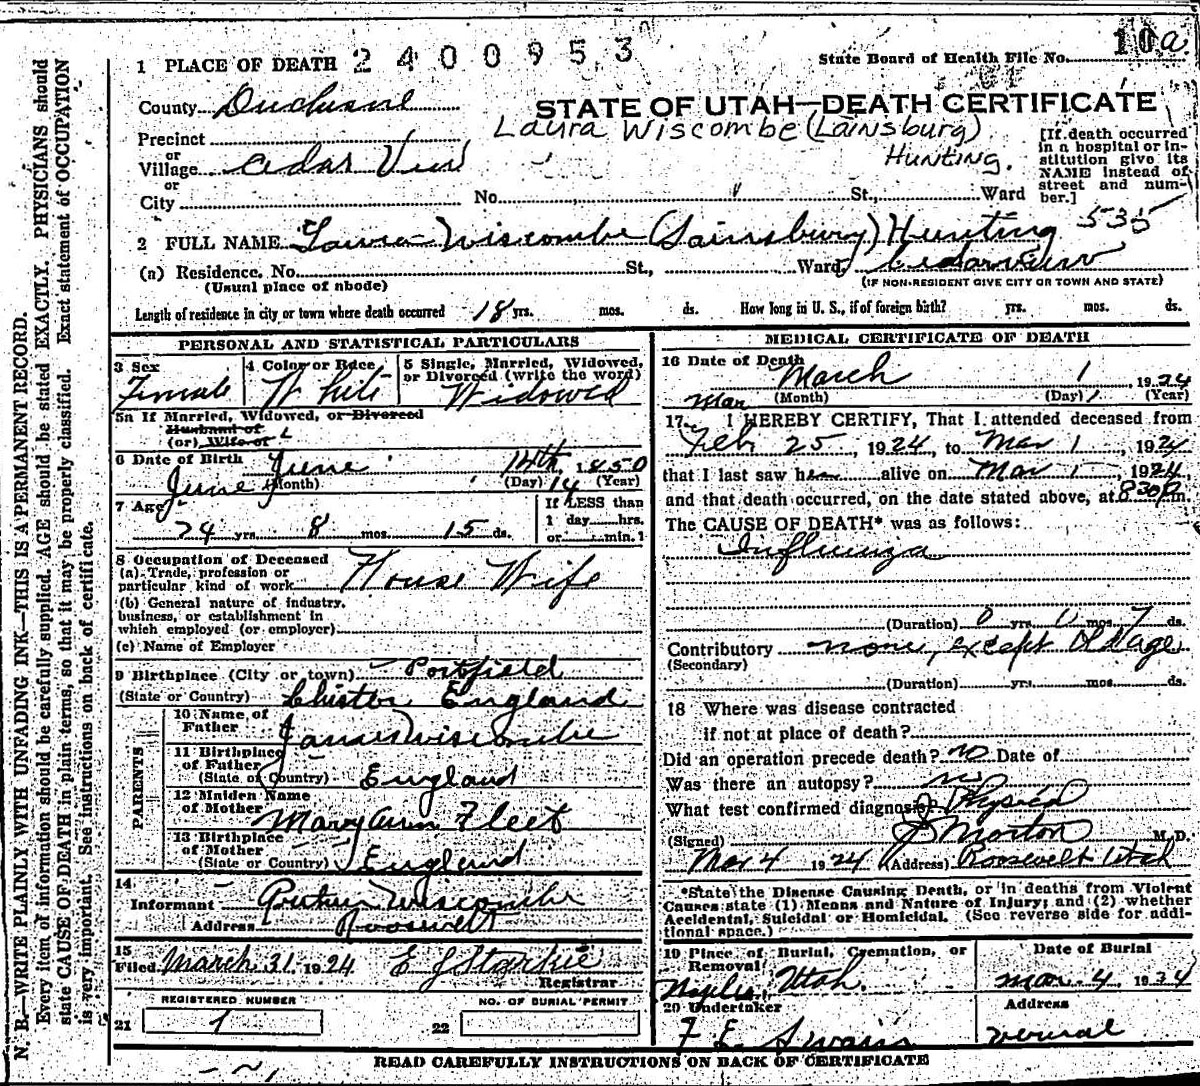 10a
State Board of Health File No.
1 PLACE OF DEATH 2400953
County Duchesne
STATE OF UTAH—DEATH CERTIFICATE
Laura Wiscombe (Lainsburg)
Hunting.
Precinct
or
Village Cedar View
or
City
No. St., Ward
[If death occurred
in a hospital or in-
stitution give its
NAME instead of
street and num-
ber.]
535
2 FULL NAME Laura Wiscombe (Sainsbury) Hunting
(a) Residence. No. St., Ward, Cedarview
(Usual place of abode)
(IF NON-RESIDENT GIVE CITY OR TOWN AND STATE)
Length of residence in city or town where death occurred 18 yrs. mos. ds. How long in U. S., if of foreign birth? yrs. mos. ds.
PERSONAL AND STATISTICAL PARTICULARS
3 Sex
Female
4 Color or Race
White
5 Single, Married, Widowed,
or Divorced (write the word)
Widowed
5a If Married, Widowed, or Divorced
Husband of
(or) Wife of
6 Date of Birth June 14th, 1850
June (Month) (Day) 14 (Year)
7 Age
74 yrs. 8 mos. 15 ds.
If LESS than
1 day hrs.
or min.?
8 Occupation of Deceased
(a) Trade, profession or
particular kind of work House Wife
(b) General nature of industry,
business, or establishment in
which employed (or employer)
(c) Name of Employer
9 Birthplace (City or town) Portfield
(State or Country) Chister England
PARENTS
10 Name of
Father James Wiscombe
11 Birthplace
of Father
(State or Country) England
12 Maiden Name
of Mother Mary Ann Fleet
13 Birthplace
of Mother
(State or Country) England
14
Informant Arthur Wiscombe
Address Roosevelt
15
Filed March 31, 1924 E J Starkie
Registrar
REGISTERED NUMBER
21 1
NO. OF BURIAL PERMIT
22
MEDICAL CERTIFICATE OF DEATH
16 Date of Death
March 1, 1924
Mar (Month) (Day) 1 (Year)
17 I HEREBY CERTIFY, That I attended deceased from
Feb 25, 1924, to Mar 1, 1924
that I last saw her alive on Mar 1 1924
and that death occurred, on the date stated above, at 830 P m.
The CAUSE OF DEATH* was as follows:
Influenza
(Duration) 0 yrs. 0 mos. 7 ds.
Contributory none, except Old age
(Secondary)
(Duration) yrs. mos. ds.
18 Where was disease contracted
if not at place of death?
Did an operation precede death? no Date of
Was there an autopsy? no
What test confirmed diagnosis? Physical
(Signed) Morton M.D.
Mar 4 1924 (Address) Roosevelt Utah
*State the Disease Causing Death, or in deaths from Violent
Causes state (1) Means and Nature of Injury; and (2) whether
Accidental, Suicidal or Homicidal. (See reverse side for addi-
tional space.)
19 Place of Burial, Cremation, or
Removal
Utah.
Date of Burial
Mar. 4 1934
20 Undertaker
F E Swain
Address
Vernal
READ CAREFULLY INSTRUCTIONS ON BACK OF CERTIFICATE
N. B.—WRITE PLAINLY WITH UNFADING INK—THIS IS A PERMANENT RECORD.
Every item of information should be carefully supplied. AGE should be stated EXACTLY. PHYSICIANS should
state CAUSE OF DEATH in plain terms, so that it may be properly classified. Exact statement of OCCUPATION
is very important. See instructions on back of certificate.